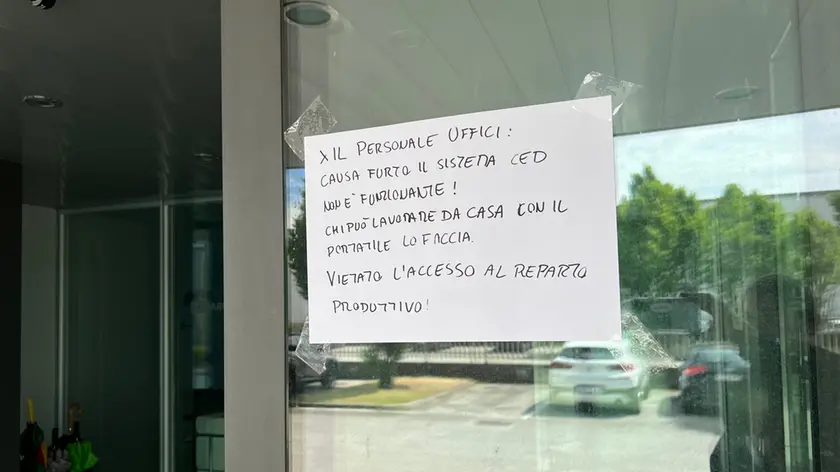 X IL PERSONALE UFFICI:
CAUSA FURTO IL SISTEMA CED
NON E' FUNZIONANTE!
CHI PUÒ LAVORARE DA CASA CON IL
PORTATILE LO FACCIA.
VIETATO L'ACCESSO AL REPARTO
PRODUTTIVO!